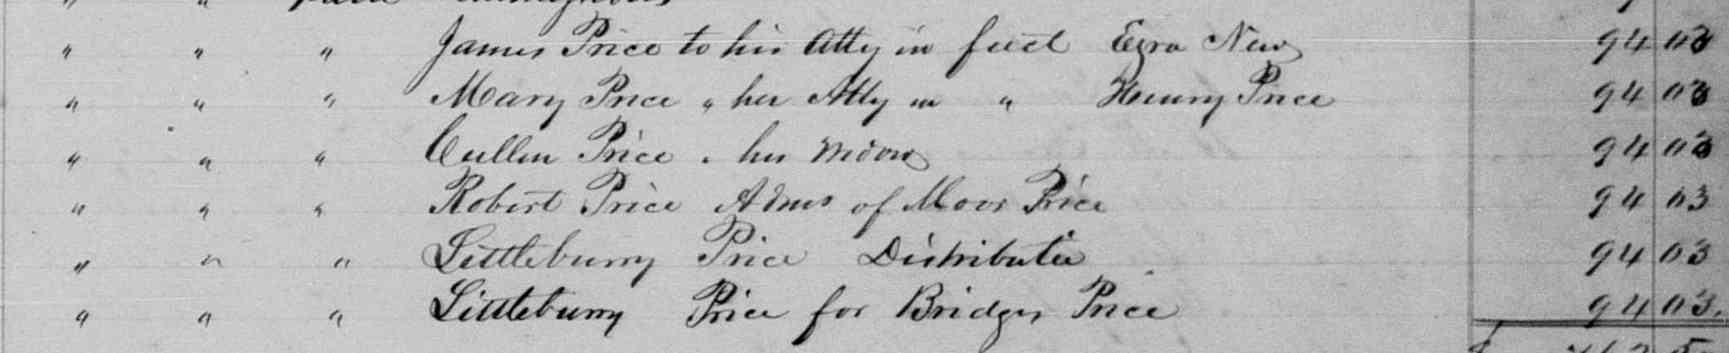 " " "
" " " James Price to his Atty in fact Ezra New 94 03
" " " Mary Price " her Atty in " Henry Price 94 03
" " " Cullen Price " his 94 03
" " " Robert Price Admr of Moor Price 94 03
" " " Littleburry Price Distributee 94 03
" " " Littleburry Price for Bridges Price 94 03.
$